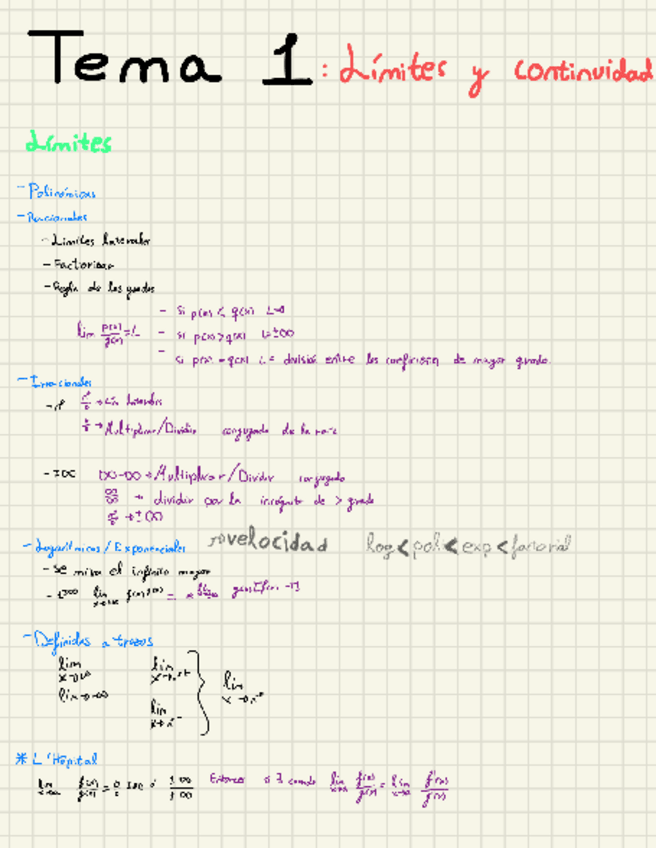 Tema 1: Límites y continuidad
Límites
- Polinómicas
- Racionales
- Límites laterales
- Factorizar
- Regla de los grados
lim p(x)/q(x) = L
- si p(x) < q(x) L=0
- si p(x) > q(x) L=±∞
- si p(x) = q(x) L = división entre los coeficientes de mayor grado.
- Irracionales
→ Lím laterales
→ Multiplicar/Dividir conjugado de la raíz
- ±∞ ∞-∞ → Multiplicar/Dividir conjugado
∞/∞ → dividir por la incógnita de > grado
→ ±∞
- Logarítmicas / Exponenciales → velocidad log < pol < exp < factorial
- Se mira el infinito mayor
- Definidas a trozos
lim x→∞
lim x→-∞
* L'Hôpital
Entonces